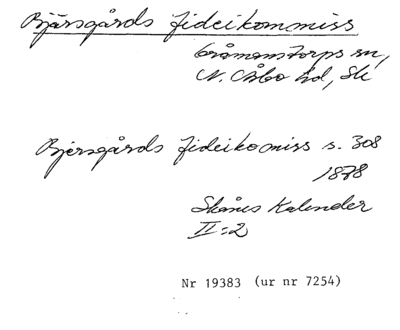 Bjärsgårds fideikommiss
Gråmanstorps sn,
N. Åsbo hd, Sk
Bjersgårds fideikomiss s. 308
1878
Skånes Kalender
II:2
Nr 19383 (ur nr 7254)